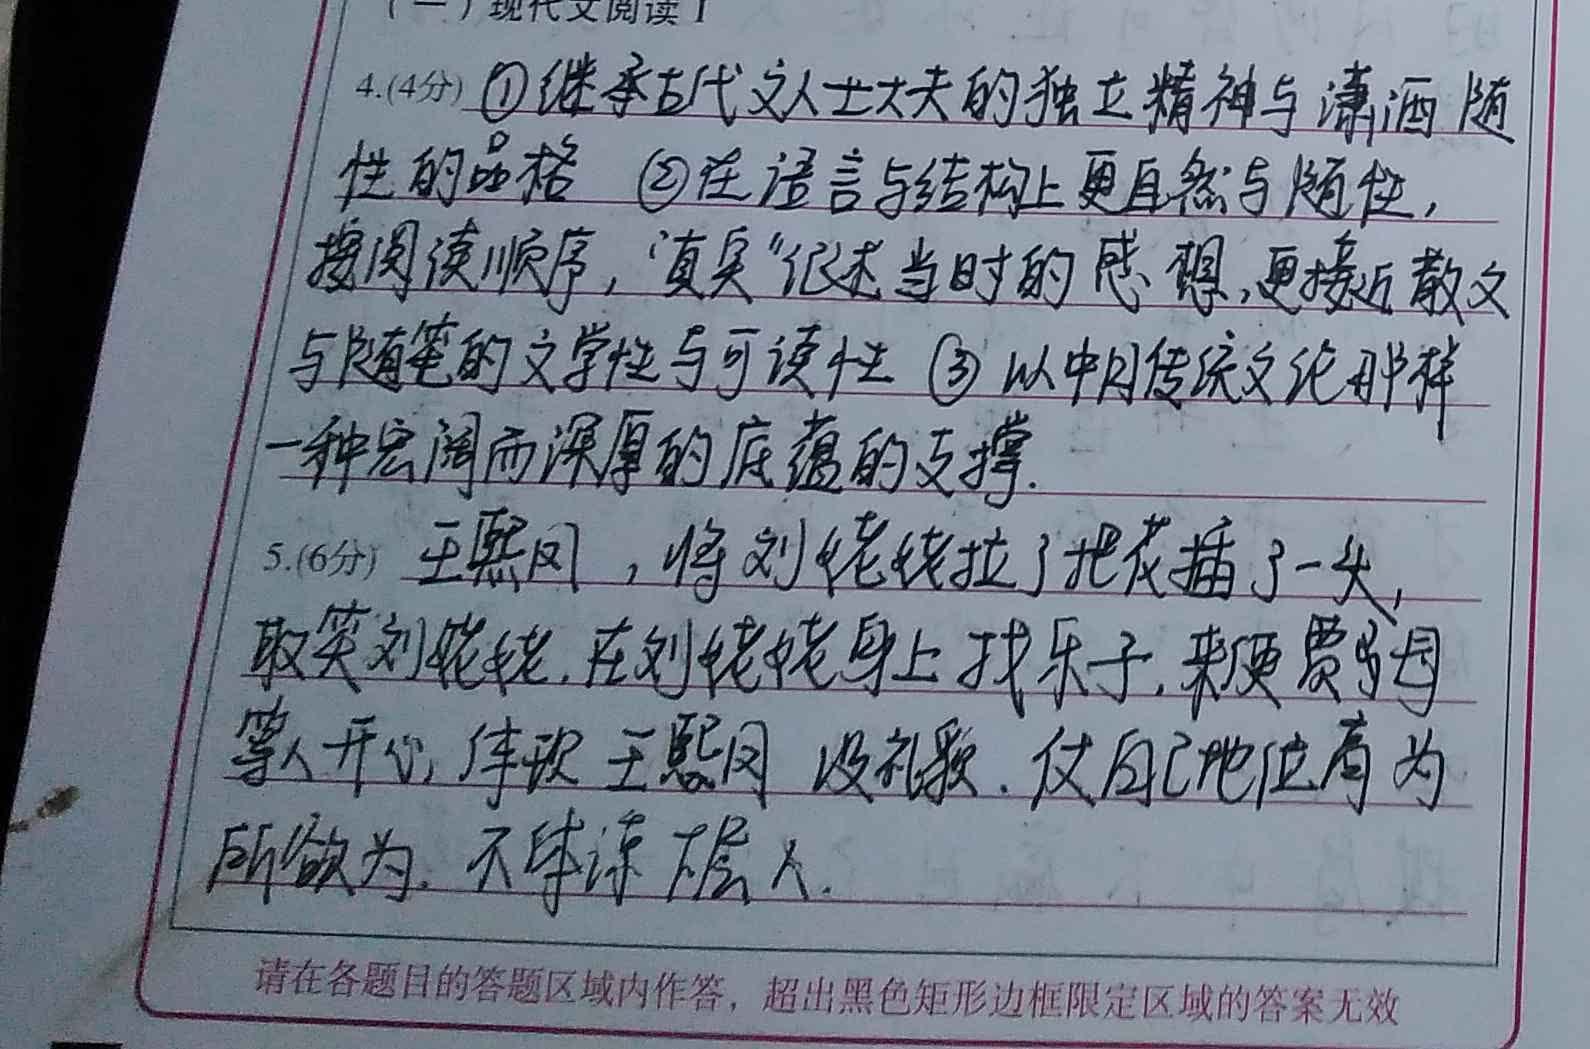 (一)现代文阅读I
4.(4分) ①继承古代文人士大夫的独立精神与潇洒随
性的品格 ②在语言与结构上更自然与随性,
按阅读顺序,“真实”记述当时的感想,更接近散文
与随笔的文学性与可读性 ③以中国传统文论那样
一种宏阔而深厚的底蕴的支撑.
5.(6分) 王熙凤,将刘佬佬拉了把花插了一头,
取笑刘佬佬.在刘佬佬身上找乐子.来使贾母
等人开心,体现王熙凤没礼貌.仗自己地位高为
所欲为.不体谅下层人.
请在各题目的答题区域内作答，超出黑色矩形边框限定区域的答案无效